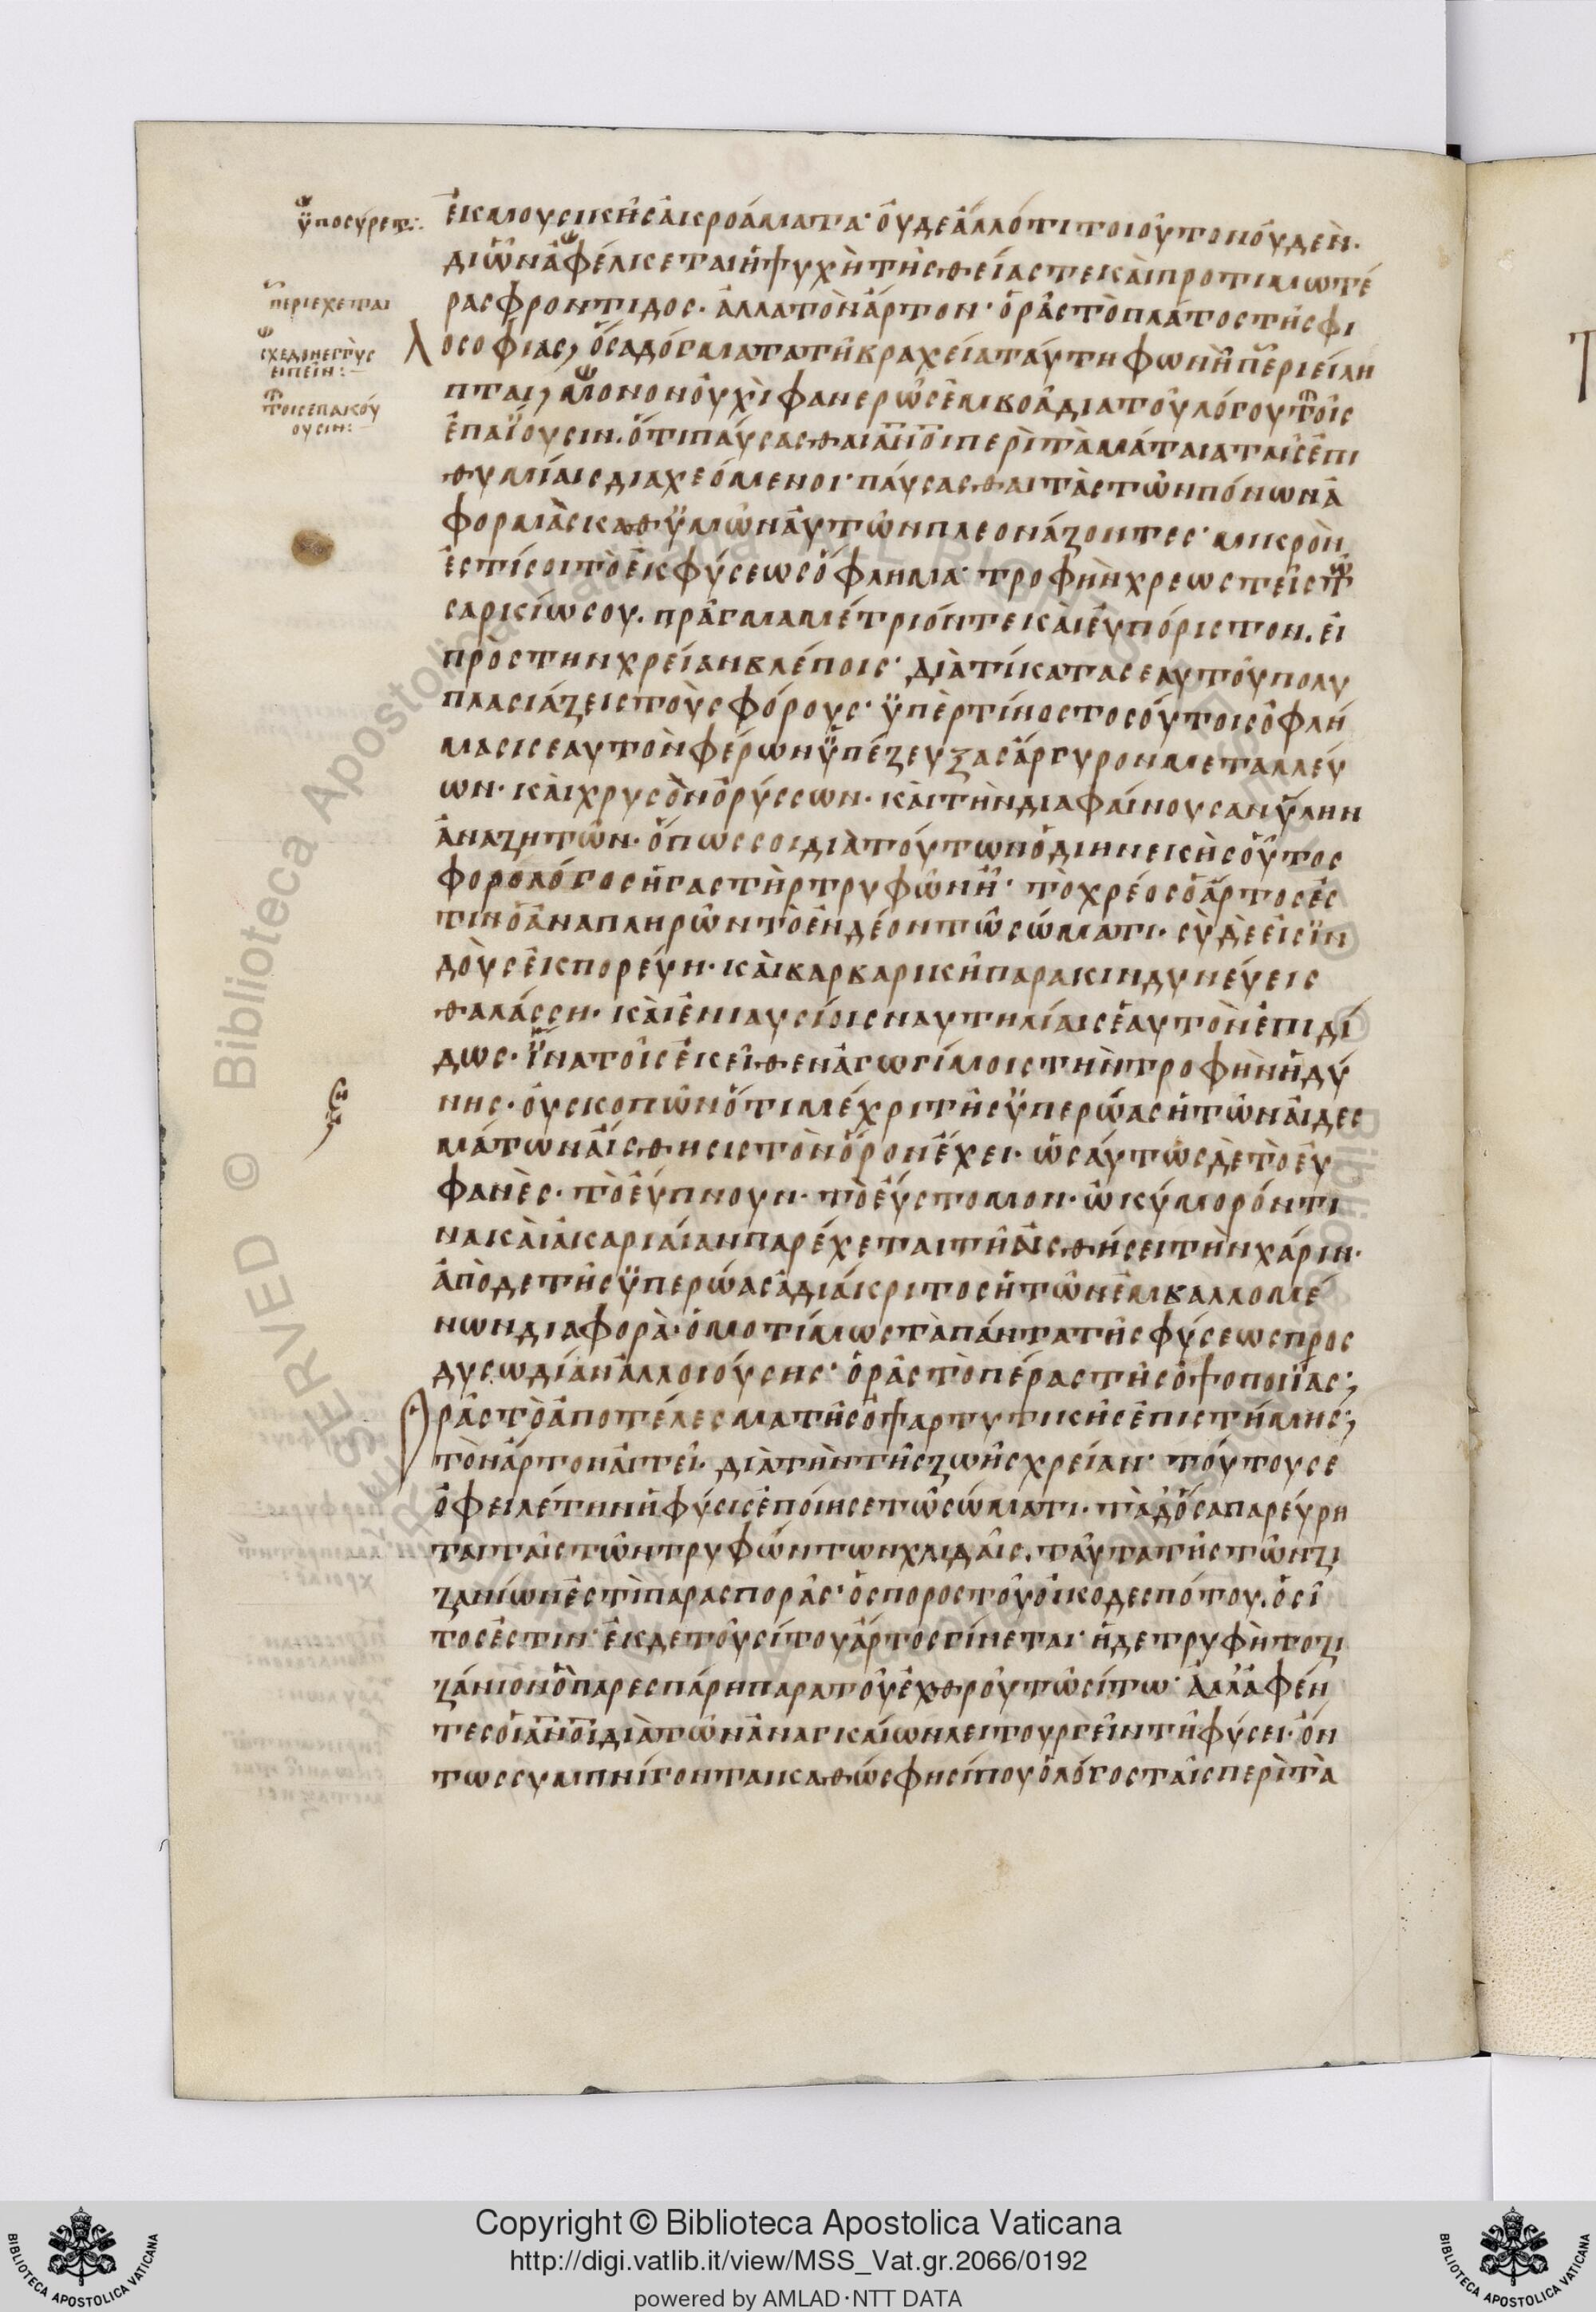 ὑποσύρεται:
περιέχεται
σχεδὸν ἐστὶν ὡς
εἰπεῖν:
τοῖς ἐπακού
ουσιν:
ἐκ μουσικῆς ἀκροάματα· οὐδε ἄλλό τι τοιοῦτον οὐδὲν·
δι ὧν ἀφέλκεται ἡ ψυχὴ τῆς θείας τε καὶ προτιμωτέ
ρας φροντιδος· ἀλλα τὸν ἄρτον· ὁρᾶς τὸ πλάτος τῆς φι
λοσοφίας, ὅσα δόγματα τῆ βραχεία ταύτη φωνῆ περιείλη
πται, μονον οὐχὶ φανερῶς ἐμβοᾶ δια τοῦ λόγου τοῖς
ἐπαΐουσιν. ὅτι παύσασθαι ἄνοι περὶ τὰ μάταια ταῖς ἐπι
θυμίαις διαχεόμενοι· παύσασθαι τὰς τῶν πόνων ἀ
φορμὰς καθ ὑμῶν αὐτῶν πλεονάζοντες· μικρόν
ἐστί σοι τὸ ἐκ φύσεως ὄφλημα· τροφὴν χρεωστεῖς τῶ
σαρκίω σου. πρᾶγμα μέτριόν τε καὶ εὐπόριστον. εἰ
πρὸς την χρείαν βλέποις· διὰ τί κατα σεαυτοῦ πολυ
πλασιάζεις τοὺς φόρους· ὑπὲρ τίνος τοσούτοις ὀφλή
μασι σεαυτὸν φέρων ὑπέζευξας ἄργυρον μεταλλεύ
ων· καὶ χρυσὸν ὀρύσσων· καὶ τὴν διαφαίνουσαν ὕλην
ἀναζητῶν· ὅπως σοι διὰ τούτων ὁ διηνεκὴς οὗτος
φορολόγος ἡ γαστὴρ τρυφώη ῆ· τὸ χρέος ὁ ἄρτος ἐς
τιν ὁ ἀναπληρῶν τὸ ἐνδέον τῶ σώματι· σὺ δὲ εἰς ϊν
δοὺς ἐκπορεύη· καὶ βαρβαρικῆ παρακινδυνεύεις
θαλάσση· καὶ ἐνιαυσίοις ναυτηλίαις ἑαυτὸν ἐπιδί
δως· ϊνα τοῖς ἐκεῖθεν ἀγωγίμοις τὴν τροφὴν ἡδύ
νης· οὐ σκοπῶν ὅτι μέχρι τῆς ὑπερώας ἡ τῶν ἀιδες
μάτων αἴσθησις τὸν ὅρον ἔχει· ὡσαύτως δὲ τὸ εὐ
φανὲς· τὸ εὔπνουν· τὸ εὔστομον· ὠκύμορόν τι
να καὶ ἀκαριαίαν παρέχεται τῆ αἰσθήσει τὴν χάριν·
ἀπὸ δε τῆς ὑπερώας ἀδιάκριτος ἡ τῶν ἐμβαλλομέ
νων διαφορὰ· ὁμοτίμως τὰ πάντα τῆς φύσεως προς
δυσωδίαν ἀλλοιούσης· ὁρᾶς τὸ πέρας τῆς ὀψοποιΐας;
ὁρᾶς τὸ ἀποτέλεσμα τῆς ὀψαρτυτικῆς ἐπιστήμης;
τὸν ἄρτον αἴτει· διὰ τὴν τῆς ζωῆς χρείαν· τούτου σε
ὀφειλέτην ἡ φύσις ἐποίησε τῶ σώματι· τὰ δ ὅσα παρεύρη
ται ταῖς τῶν τρυφώντων χλιδαῖς. ταῦτα τῆς τῶν ζι
ζανίων ἐστὶ παρασπορᾶς· ὁ σπορος τοῦ οἰκοδεσπότου. ὁ σῖ
τος ἐστιν· ἐκ δε τοῦ σίτου ἄρτος γίνεται· ἡ δε τρυφὴ το ζι
ζάνιόν ὃ παρεσπάρη παρα τοῦ ἐχθροῦ τῶ σίτω· ἀλλ ἀφέν
τες οἱ ἄνοι διὰ τῶν ἀναγκαίων λειτουργεῖν τῆ φύσει· ὄν
τως συμπνίγονται καθώς φησί που ὁ λόγος ταῖς περὶ τὰ
Copyright © Biblioteca Apostolica Vaticana
http://digi.vatlib.it/view/MSS_Vat.gr.2066/0192
powered by AMLAD·NTT DATA
BIBLIOTECA APOSTOLICA VATICANA
BIBLIOTECA APOSTOLICA VATICANA